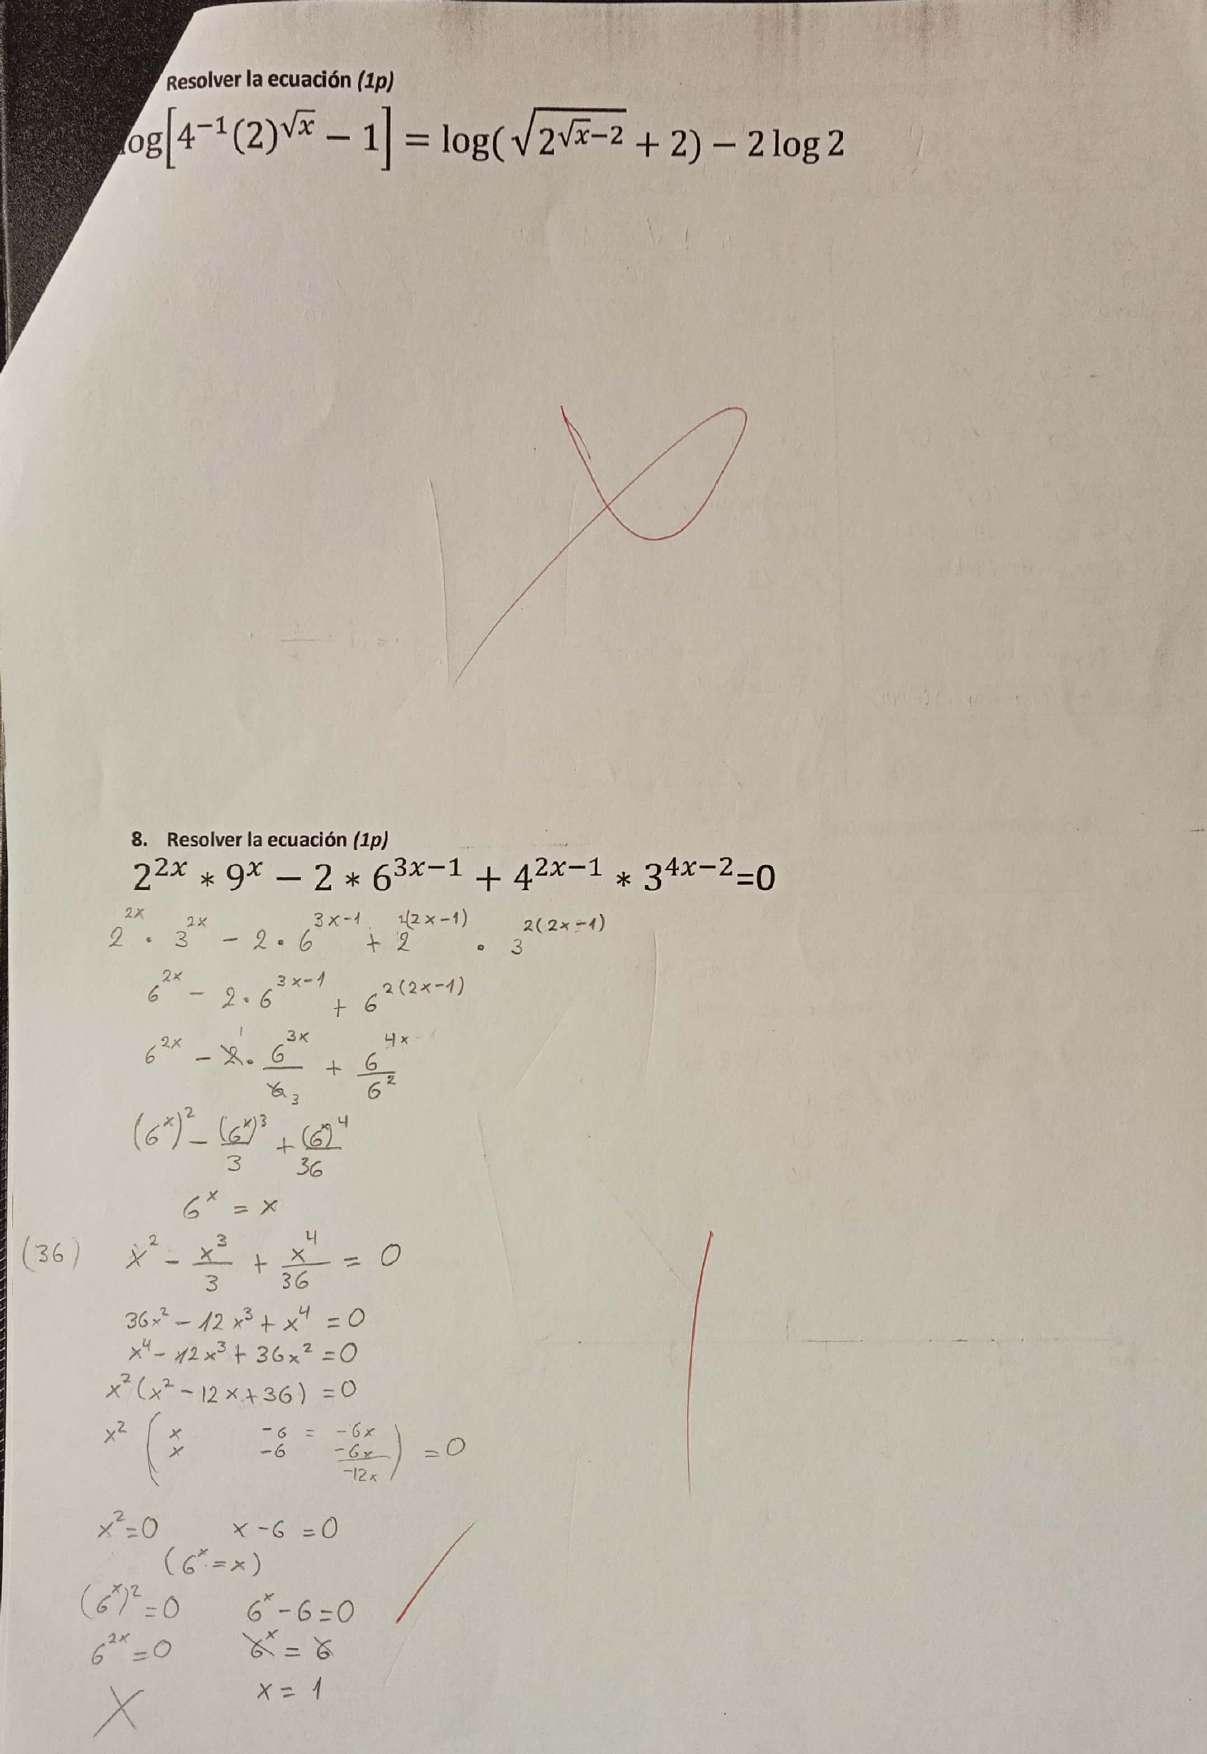 Resolver la ecuación (1p)
og[4⁻¹(2)^√x − 1] = log(√(2^(√x−2)) + 2) − 2 log 2
8. Resolver la ecuación (1p)
2^2x * 9^x − 2 * 6^3x−1 + 4^2x−1 * 3^4x−2=0
2^2x · 3^2x − 2 · 6^3x−1 + 2^2(2x−1) · 3^2(2x−1)
6^2x − 2 · 6^3x−1 + 6^2(2x−1)
6^2x − 2 · 6^3x/6 + 6^4x/6²
1
3
(6^x)² − (6^x)³/3 + (6^x)⁴/36
6^x = x
(36) x² − x³/3 + x⁴/36 = 0
36x² − 12x³ + x⁴ = 0
x⁴ − 12x³ + 36x² = 0
x²(x² − 12x + 36) = 0
x² ( x −6 = −6x
x −6 −6x ) = 0
−12x
x² = 0 x − 6 = 0
(6^x = x)
(6^x)² = 0 6^x − 6 = 0
6^2x = 0 6^x = 6
X x = 1